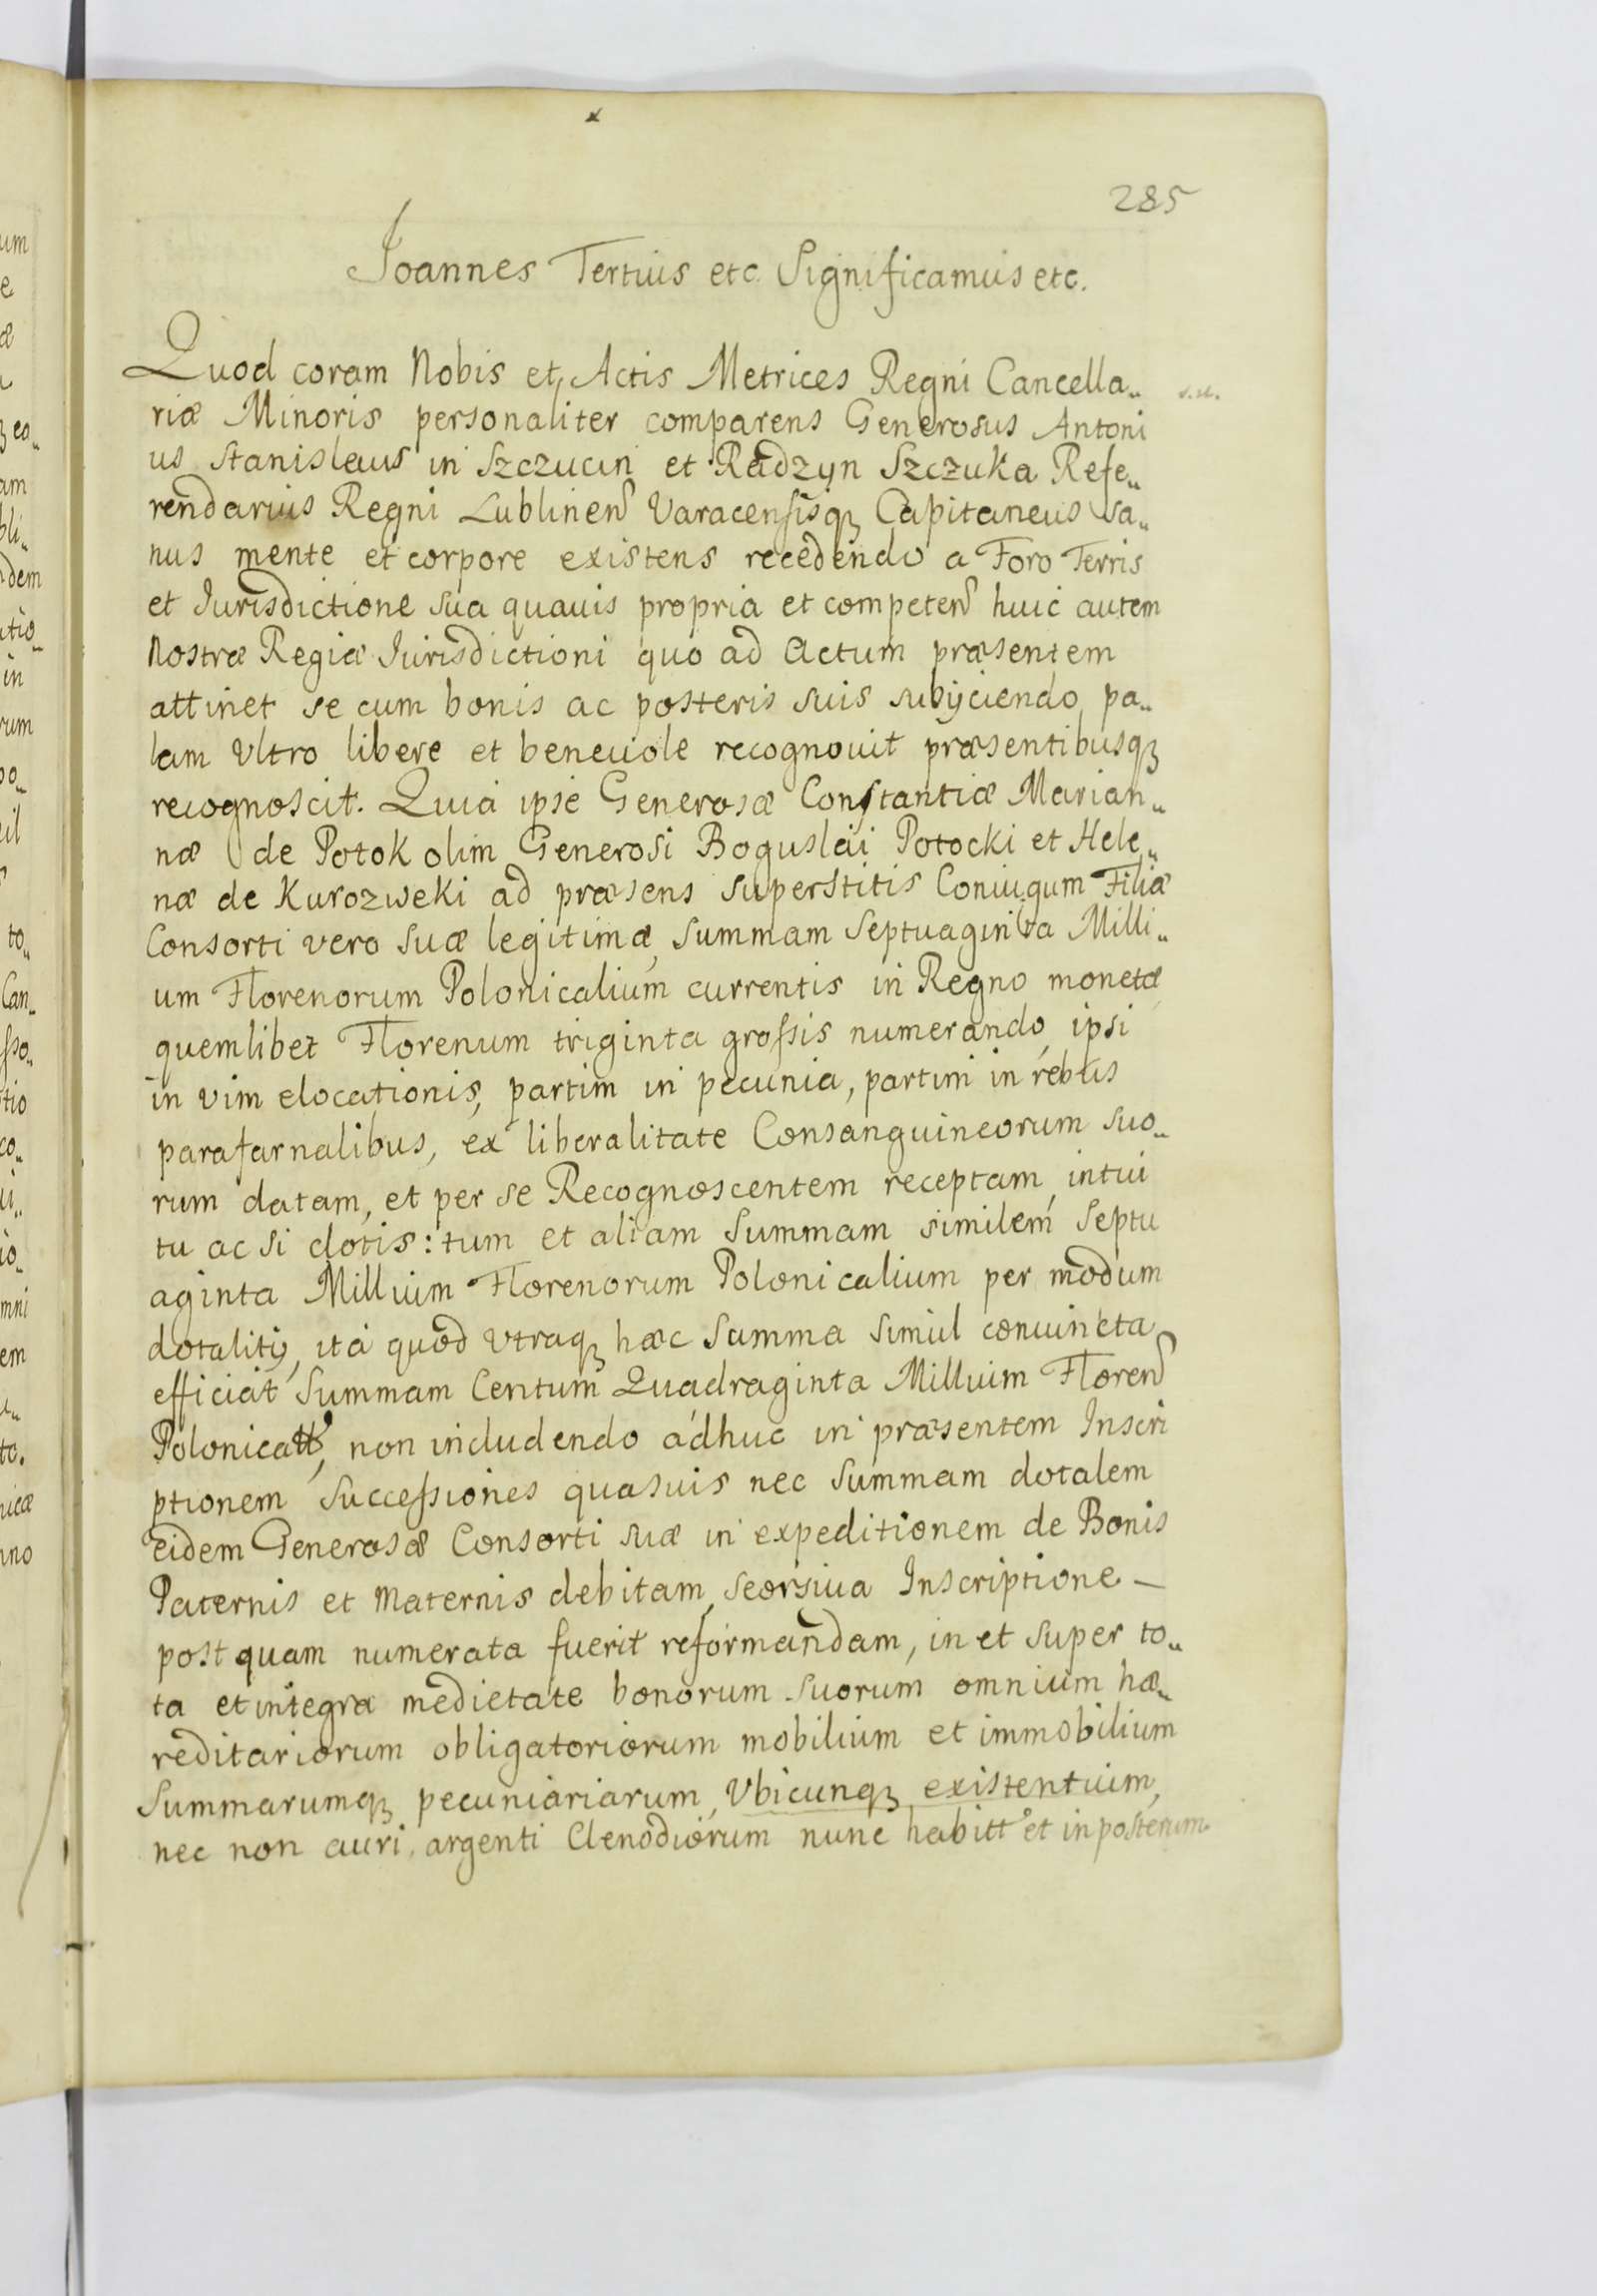 285
Joannes Tertius etc Significamus etc.
Quod coram Nobis et Actis Metrices Regni Cancella„
riæ Minoris personaliter comparens Generosus Antoni
us Stanislaus in Szczucin et Radzyn Szczuka Refe„
rendarius Regni Lublinens Varacensisq Capitaneus Sa„
nus mente et corpore existens recedendo a Foro Terris
et Jurisdictione sua quavis propria et competen huic autem
Nostræ Regiæ Jurisdictioni quo ad Actum præsentem
attinet se cum bonis ac posteris suis subijciendo, pa„
lam Vltro libere et beneuole recognouit præsentibusq
recognoscit. Quia ipse Generosæ Constantiæ Marian„
næ de Potok olim Generosi Boguslai Potocki et Hele„
næ de Kurozweki ad præsens superstitis Coniugum Filiæ
Consorti vero suæ legitimæ, summam Septuaginta Milli„
um Florenorum Polonicalium currentis in Regno monetæ
quemlibet Florenum triginta grossis numerando, ipsi
in vim elocationis, partim in pecunia, partim in rebus
parafarnalibus, ex liberalitate Consanguineorum suo„
rum datam, et per se Recognoscentem receptam, intui
tu ac si dotis: tum et aliam Summam similem Septu
aginta Millium Florenorum Polonicalium per modum
dotalitij, ita quod vtraq hæc Summa simul conuincta
efficiat Summam Centum Quadraginta Millium Floren
Polonicall, non includendo adhuc in præsentem Inscri
ptionem Successiones quasuis nec Summam dotalem
eidem Generosæ Consorti suæ in expeditionem de Bonis
Paternis et Maternis debitam, seorsiua Inscriptione –
post quam numerata fuerit reformandam, in et super to„
ta et integra medietate bonorum suorum omnium hæ„
reditariorum obligatoriorum mobilium et immobilium
Summarumq pecuniariarum, Vbicunq existentium,
nec non auri, argenti Clenodiorum nunc habitt et in posterum